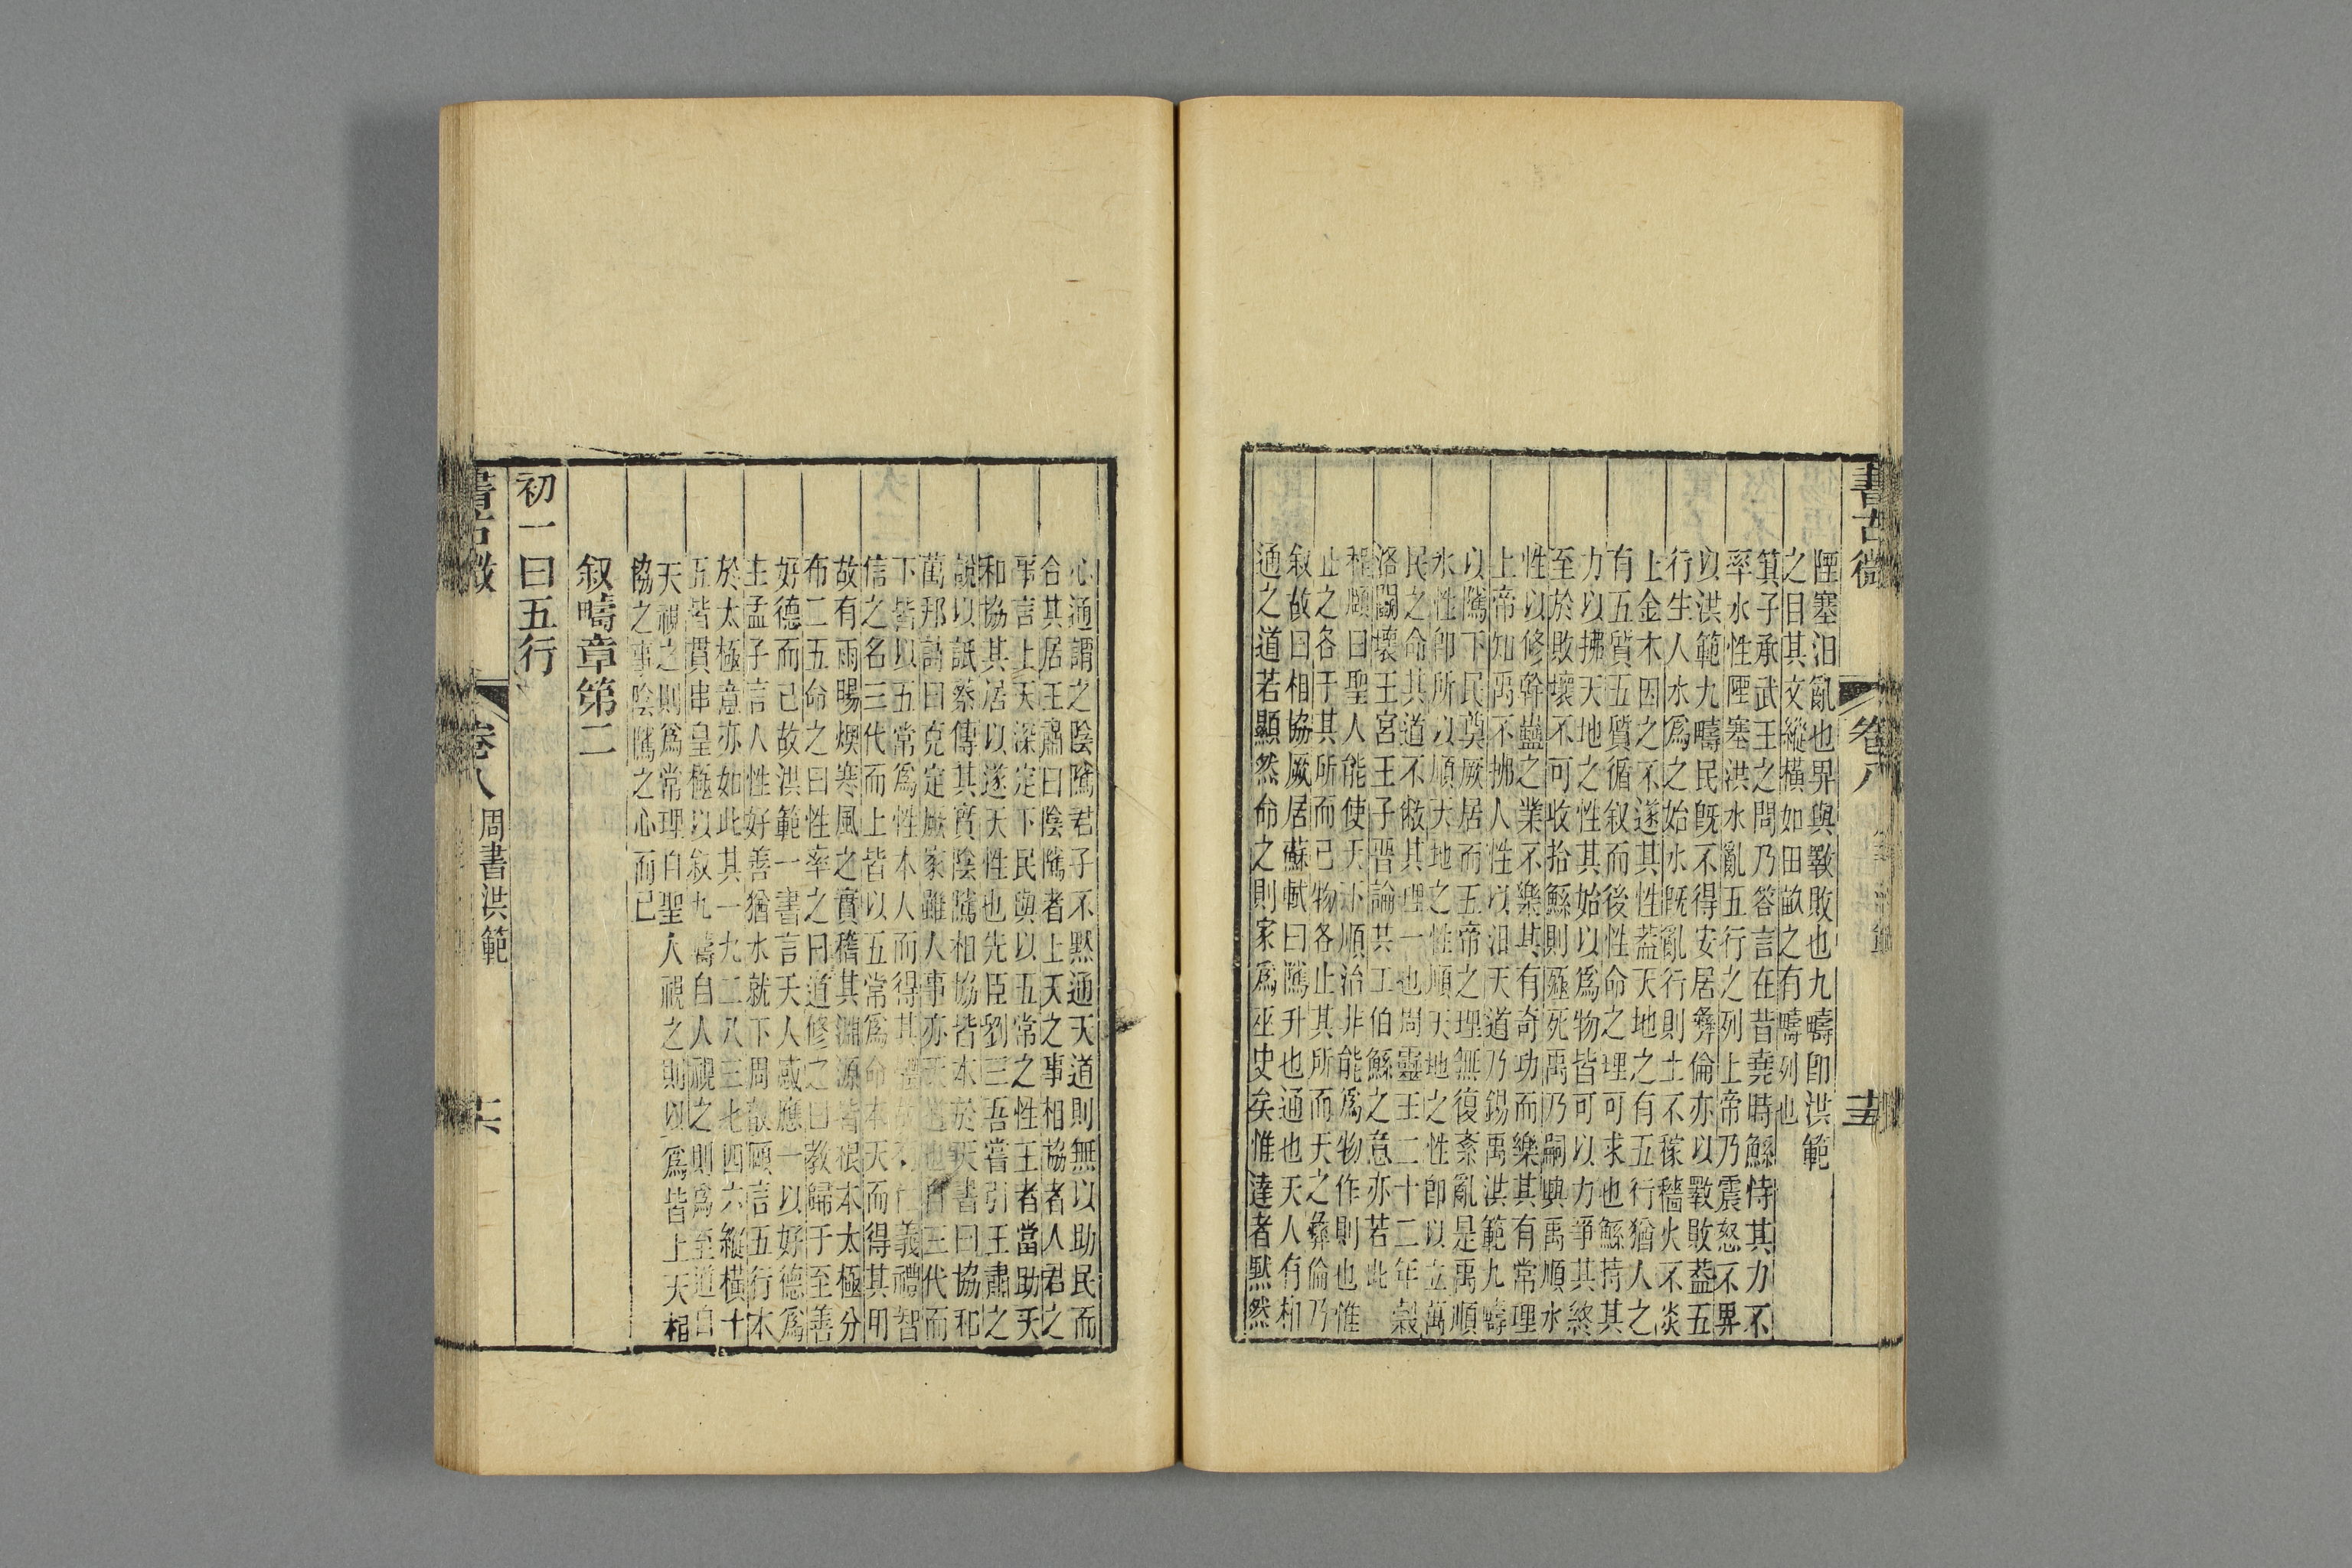 書古微 卷八 十五
陻塞汩亂也畀與斁敗也九疇即洪範
之目其文縱橫如田畝之有疇列也
箕子承武王之問乃答言在昔堯時鯀恃其力不
率水性陻塞洪水亂五行之列上帝乃震怒不畀
以洪範九疇民既不得安居彝倫亦以斁敗葢五
行生人水爲之始水既亂行則土不稼穡火不炎
上金木因之不遂其性葢天地之有五行猶人之
有五質五質循叙而後性命之理可求也鯀恃其
力以拂天地之性其始以爲物皆可以力爭其終
至於敗壞不可收拾鯀則殛死禹乃嗣興禹順水
性以修幹蠱之業不樂其有奇功而樂其有常理
上帝知禹不拂人性以汩天道乃錫禹洪範九疇
以隲下民奠厥居而五帝之理無復紊亂是禹順
水性即所以順天地之性順天地之性即以立萬
民之命其道不敝其理一也周靈王二十二年榖
洛鬭壞王宮王子晉論共工伯鯀之意亦若此
程頤曰聖人能使天下順治非能爲物作則也惟
止之各于其所而已物各止其所而天之彝倫乃
叙故曰相協厥居蘇軾曰隲升也通也天人有相
通之道若顯然命之則家爲巫史矣惟達者默然
心通謂之陰隲君子不默通天道則無以助民而
合其居王肅曰陰隲者上天之事相協者人君之
事言上天深定下民與以五常之性王者當助天
和協其居以遂天性也先臣劉三吾嘗引王肅之
說以詆蔡傳其實陰隲相協皆本於天書曰協和
萬邦詩曰克定厥家雖人事亦天道也自三代而
下皆以五常爲性本人而得其仁義禮智
信之名三代而上皆以五常爲命本天而得其明
故有雨暘燠寒風之實稽其淵源皆根本太極分
布二五命之曰性率之曰道修之曰教歸于至善
好德而已故洪範一書言天人感應一以好德爲
主孟子言人性好善猶水就下周敦頤言五行本
於太極意亦如此其一九二八三七四六縱橫十
五皆貫串皇極以叙九疇自人視之則爲至道自
天視之則爲常理自聖人視之則以爲皆上天相
協之事陰隲之心而已
叙疇章第二
初一曰五行
書古微 卷八 周書洪範 十六